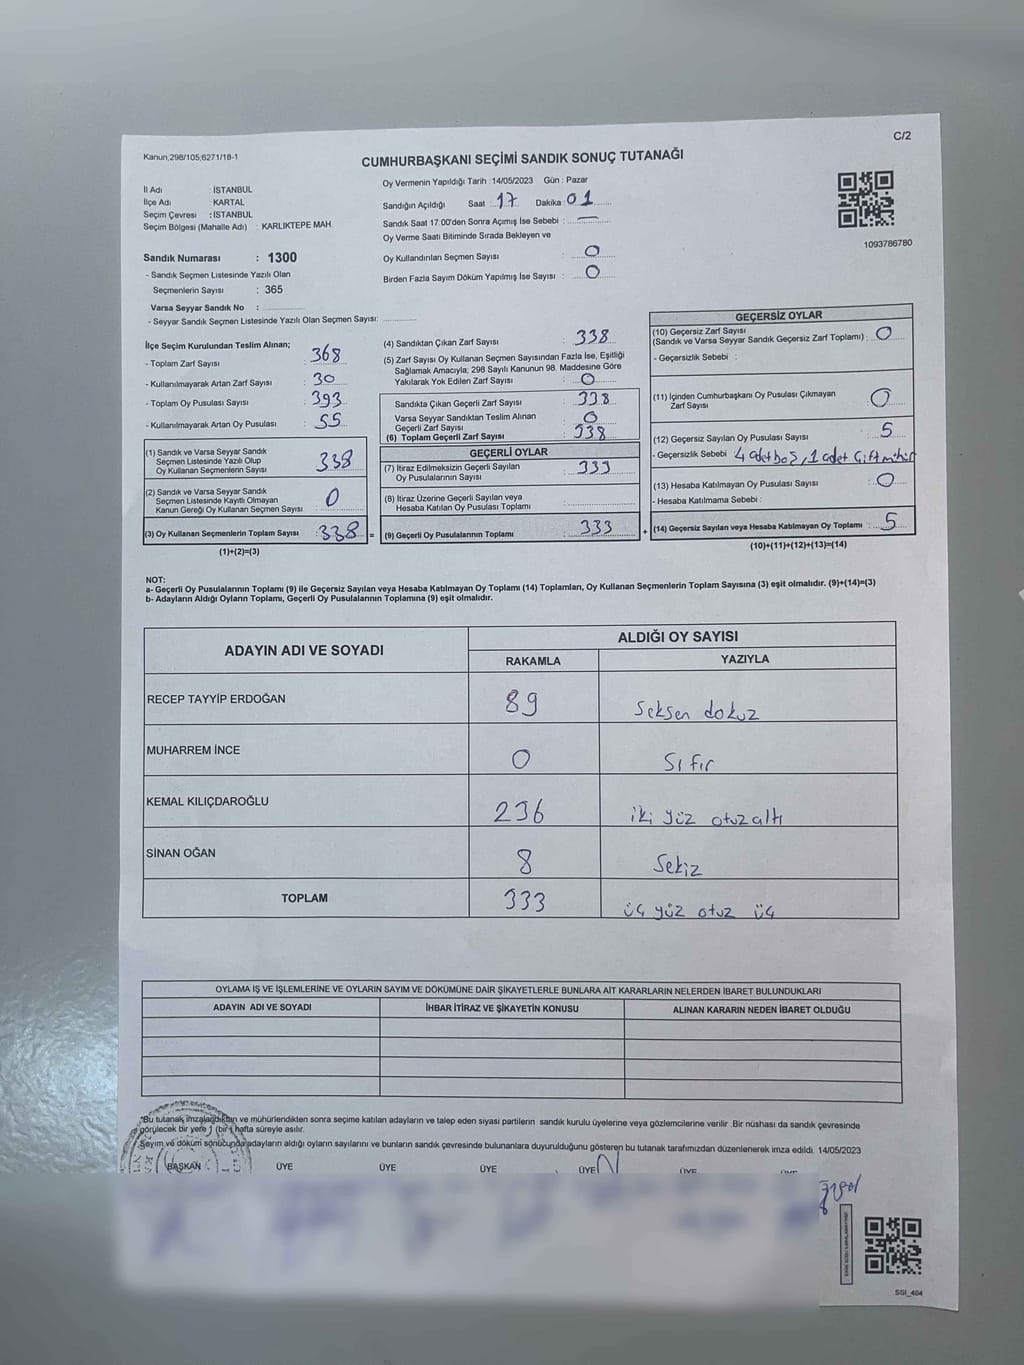 C/2
Kanun;298/105;6271/18-1
CUMHURBAŞKANI SEÇİMİ SANDIK SONUÇ TUTANAĞI
İl Adı : İSTANBUL
İlçe Adı : KARTAL
Seçim Çevresi : İSTANBUL
Seçim Bölgesi (Mahalle Adı) : KARLIKTEPE MAH.
Oy Vermenin Yapıldığı Tarih : 14/05/2023 Gün : Pazar
Sandığın Açıldığı Saat : 17 Dakika : 01
Sandık Saat 17.00'den Sonra Açımış İse Sebebi : —
Oy Verme Saati Bitiminde Sırada Bekleyen ve
Oy Kullandırılan Seçmen Sayısı : 0
Birden Fazla Sayım Döküm Yapılmış İse Sayısı : 0
1093786780
Sandık Numarası : 1300
- Sandık Seçmen Listesinde Yazılı Olan
Seçmenlerin Sayısı : 365
Varsa Seyyar Sandık No :
- Seyyar Sandık Seçmen Listesinde Yazılı Olan Seçmen Sayısı:
İlçe Seçim Kurulundan Teslim Alınan;
- Toplam Zarf Sayısı : 368
- Kullanılmayarak Artan Zarf Sayısı : 30
- Toplam Oy Pusulası Sayısı : 393
- Kullanılmayarak Artan Oy Pusulası : 55
(1) Sandık ve Varsa Seyyar Sandık
Seçmen Listesinde Yazılı Olup
Oy Kullanan Seçmenlerin Sayısı : 338
(2) Sandık ve Varsa Seyyar Sandık
Seçmen Listesinde Kayıtlı Olmayan
Kanun Gereği Oy Kullanan Seçmen Sayısı : 0
(3) Oy Kullanan Seçmenlerin Toplam Sayısı : 338 =
(1)+(2)=(3)
(4) Sandıktan Çıkan Zarf Sayısı : 338
(5) Zarf Sayısı Oy Kullanan Seçmen Sayısından Fazla İse, Eşitliği
Sağlamak Amacıyla; 298 Sayılı Kanunun 98. Maddesine Göre
Yakılarak Yok Edilen Zarf Sayısı : 0
Sandıkta Çıkan Geçerli Zarf Sayısı : 338
Varsa Seyyar Sandıktan Teslim Alınan
Geçerli Zarf Sayısı : 0
(6) Toplam Geçerli Zarf Sayısı : 338
GEÇERLİ OYLAR
(7) İtiraz Edilmeksizin Geçerli Sayılan
Oy Pusulalarının Sayısı : 333
(8) İtiraz Üzerine Geçerli Sayılan veya
Hesaba Katılan Oy Pusulalarının Toplamı :
(9) Geçerli Oy Pusulalarının Toplamı : 333 +
GEÇERSİZ OYLAR
(10) Geçersiz Zarf Sayısı
(Sandık ve Varsa Seyyar Sandık Geçersiz Zarf Toplamı) : 0
- Geçersizlik Sebebi :
(11) İçinden Cumhurbaşkanı Oy Pusulası Çıkmayan
Zarf Sayısı : 0
(12) Geçersiz Sayılan Oy Pusulası Sayısı : 5
- Geçersizlik Sebebi : 4 adet boş, 1 adet çift mühür
(13) Hesaba Katılmayan Oy Pusulası Sayısı : 0
- Hesaba Katılmama Sebebi :
(14) Geçersiz Sayılan veya Hesaba Katılmayan Oy Toplamı : 5
(10)+(11)+(12)+(13)=(14)
NOT:
a- Geçerli Oy Pusulalarının Toplamı (9) ile Geçersiz Sayılan veya Hesaba Katılmayan Oy Toplamı (14) Toplamları, Oy Kullanan Seçmenlerin Toplam Sayısına (3) eşit olmalıdır. (9)+(14)=(3)
b- Adayların Aldığı Oyların Toplamı, Geçerli Oy Pusulalarının Toplamına (9) eşit olmalıdır.
ADAYIN ADI VE SOYADI ALDIĞI OY SAYISI
RAKAMLA YAZIYLA
RECEP TAYYİP ERDOĞAN 89 Seksen dokuz
MUHARREM İNCE 0 Sıfır
KEMAL KILIÇDAROĞLU 236 iki yüz otuz altı
SİNAN OĞAN 8 Sekiz
TOPLAM 333 üç yüz otuz üç
OYLAMA İŞ VE İŞLEMLERİNE VE OYLARIN SAYIM VE DÖKÜMÜNE DAİR ŞİKAYETLERLE BUNLARA AİT KARARLARIN NELERDEN İBARET BULUNDUKLARI
ADAYIN ADI VE SOYADI İHBAR İTİRAZ VE ŞİKAYETİN KONUSU ALINAN KARARIN NEDEN İBARET OLDUĞU
"Bu tutanak imzalandıktan ve mühürlendikten sonra seçime katılan adayların ve talep eden siyasi partilerin sandık kurulu üyelerine veya gözlemcilerine verilir. Bir nüshası da sandık çevresinde
görülecek bir yere 1 (bir) hafta süreyle asılır.
Sayım ve döküm sonucunda adayların aldığı oyların sayılarını ve bunların sandık çevresinde bulunanlara duyurulduğunu gösteren bu tutanak tarafımızdan düzenlenerek imza edildi. 14/05/2023
BAŞKAN ÜYE ÜYE ÜYE ÜYE ÜYE
SSI_404